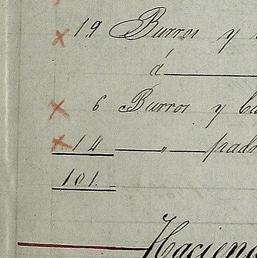 19 Burros y
á
6 Burros y bu
14 — " — padr
101.
Haciend